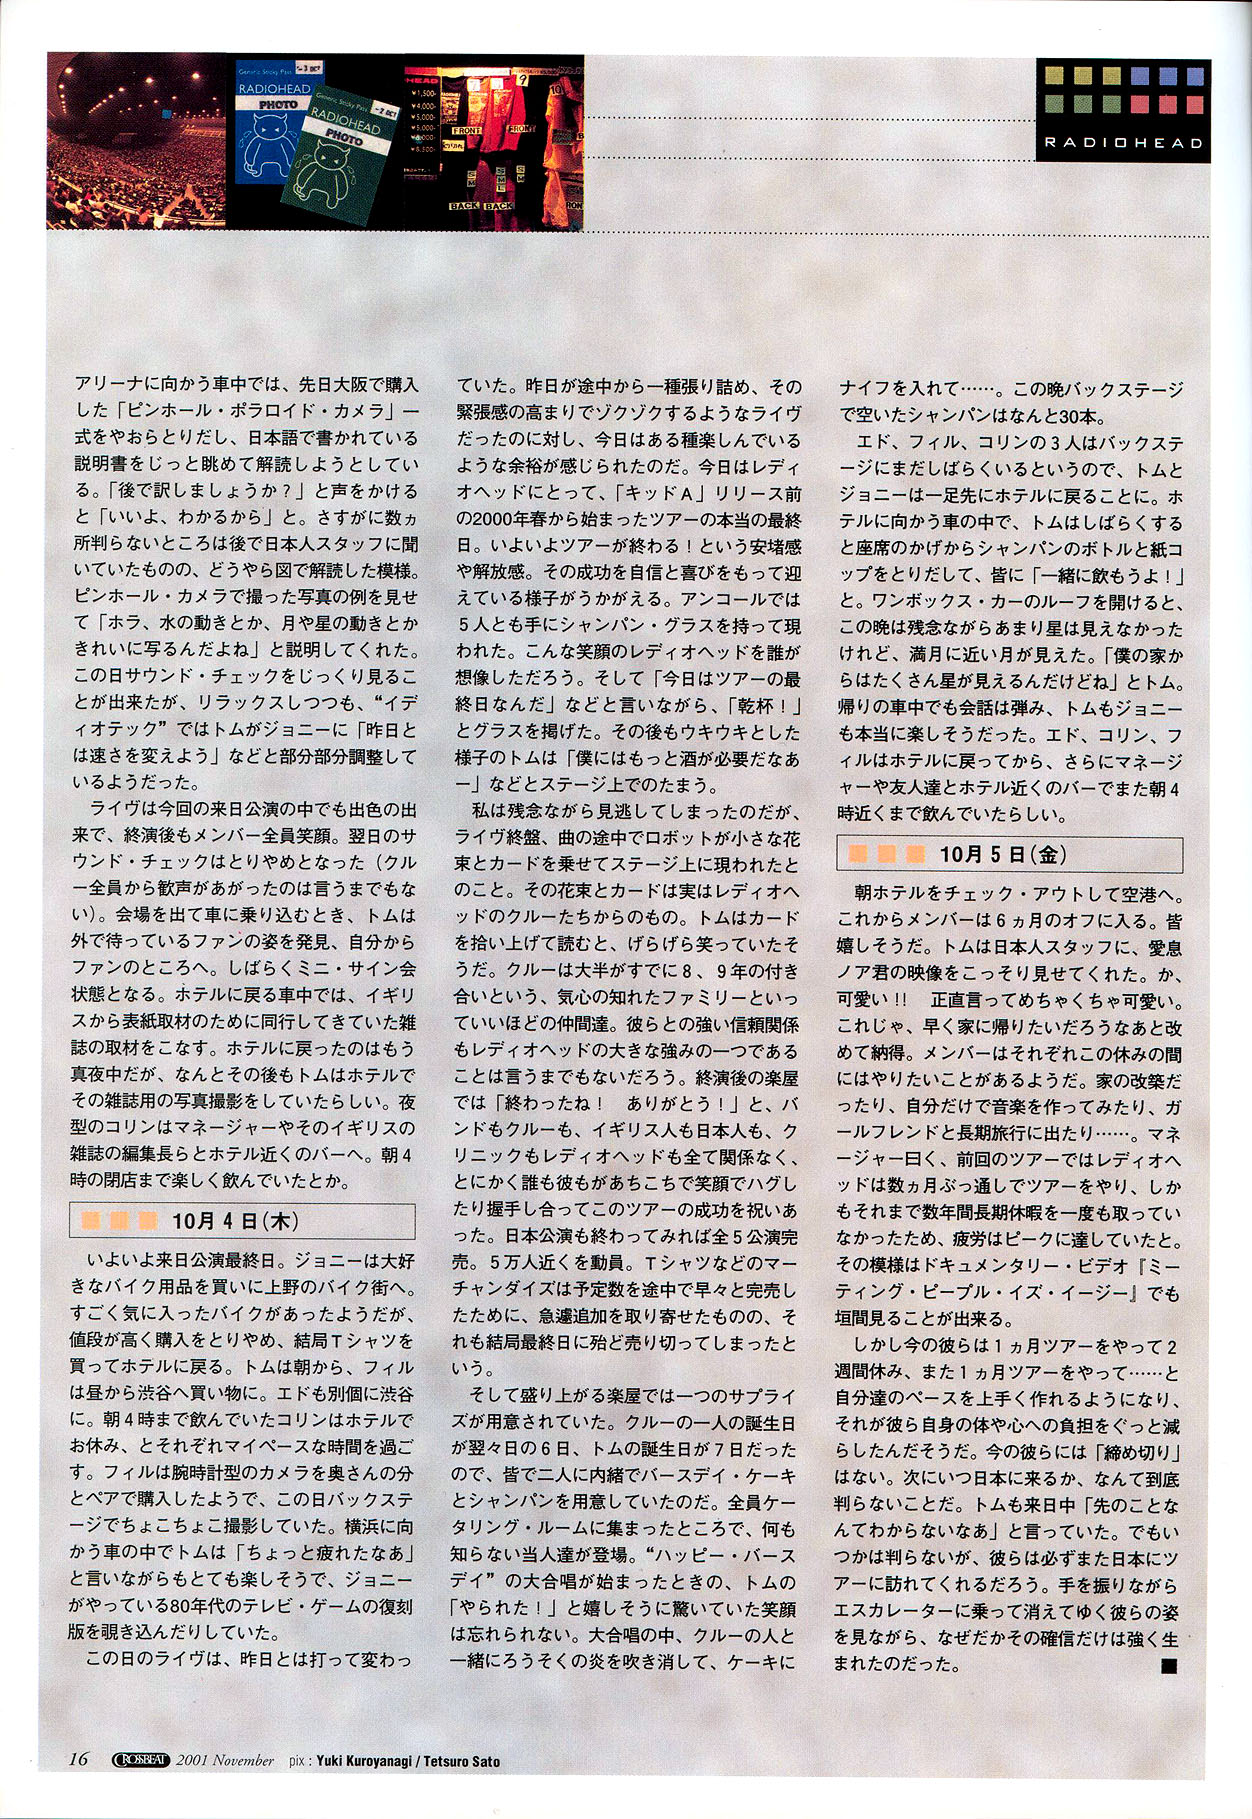 Generic Sticky Pass
-3 OCT
RADIOHEAD
PHOTO
Generic Sticky Pass
-2 OCT
RADIOHEAD
PHOTO
HEAD
¥1,500-
¥4,000-
¥5,000-
¥5,000-
¥8,500-
7
9
10
FRONT
FRONT
BACK
BACK
RADIOHEAD
アリーナに向かう車中では、先日大阪で購入
した「ピンホール・ポラロイド・カメラ」一
式をやおらとりだし、日本語で書かれている
説明書をじっと眺めて解読しようとしてい
る。「後で訳しましょうか？」と声をかける
と「いいよ、わかるから」と。さすがに数ヵ
所判らないところは後で日本人スタッフに聞
いていたものの、どうやら図で解読した模様。
ピンホール・カメラで撮った写真の例を見せ
て「ホラ、水の動きとか、月や星の動きとか
きれいに写るんだよね」と説明してくれた。
この日サウンド・チェックをじっくり見るこ
とが出来たが、リラックスしつつも、“イデ
ィオテック”ではトムがジョニーに「昨日と
は速さを変えよう」などと部分部分調整して
いるようだった。
ライヴは今回の来日公演の中でも出色の出
来で、終演後もメンバー全員笑顔。翌日のサ
ウンド・チェックはとりやめとなった（クル
ー全員から歓声があがったのは言うまでもな
い）。会場を出て車に乗り込むとき、トムは
外で待っているファンの姿を発見、自分から
ファンのところへ。しばらくミニ・サイン会
状態となる。ホテルに戻る車中では、イギリ
スから表紙取材のために同行してきていた雑
誌の取材をこなす。ホテルに戻ったのはもう
真夜中だが、なんとその後もトムはホテルで
その雑誌用の写真撮影をしていたらしい。夜
型のコリンはマネージャーやそのイギリスの
雑誌の編集長らとホテル近くのバーへ。朝4
時の閉店まで楽しく飲んでいたとか。
10月4日(木)
いよいよ来日公演最終日。ジョニーは大好
きなバイク用品を買いに上野のバイク街へ。
すごく気に入ったバイクがあったようだが、
値段が高く購入をとりやめ、結局Tシャツを
買ってホテルに戻る。トムは朝から、フィル
は昼から渋谷へ買い物に。エドも別個に渋谷
に。朝4時まで飲んでいたコリンはホテルで
お休み、とそれぞれマイペースな時間を過ご
す。フィルは腕時計型のカメラを奥さんの分
とペアで購入したようで、この日バックステ
ージでちょこちょこ撮影していた。横浜に向
かう車の中でトムは「ちょっと疲れたなあ」
と言いながらもとても楽しそうで、ジョニー
がやっている80年代のテレビ・ゲームの復刻
版を覗き込んだりしていた。
この日のライヴは、昨日とは打って変わっ
ていた。昨日が途中から一種張り詰め、その
緊張感の高まりでゾクゾクするようなライヴ
だったのに対し、今日はある種楽しんでいる
ような余裕が感じられたのだ。今日はレディ
オヘッドにとって、「キッドA」リリース前
の2000年春から始まったツアーの本当の最終
日。いよいよツアーが終わる！という安堵感
や解放感。その成功を自信と喜びをもって迎
えている様子がうかがえる。アンコールでは
5人とも手にシャンパン・グラスを持って現
われた。こんな笑顔のレディオヘッドを誰が
想像しただろう。そして「今日はツアーの最
終日なんだ」などと言いながら、「乾杯！」
とグラスを掲げた。その後もウキウキとした
様子のトムは「僕にはもっと酒が必要だなあ
ー」などとステージ上でのたまう。
私は残念ながら見逃してしまったのだが、
ライヴ終盤、曲の途中でロボットが小さな花
束とカードを乗せてステージ上に現われたと
のこと。その花束とカードは実はレディオヘ
ッドのクルーたちからのもの。トムはカード
を拾い上げて読むと、げらげら笑っていたそ
うだ。クルーは大半がすでに8、9年の付き
合いという、気心の知れたファミリーといっ
ていいほどの仲間達。彼らとの強い信頼関係
もレディオヘッドの大きな強みの一つである
ことは言うまでもないだろう。終演後の楽屋
では「終わったね！　ありがとう！」と、バ
ンドもクルーも、イギリス人も日本人も、ク
リニックもレディオヘッドも全て関係なく、
とにかく誰も彼もがあちこちで笑顔でハグし
たり握手し合ってこのツアーの成功を祝いあ
った。日本公演も終わってみれば全5公演完
売。5万人近くを動員。Tシャツなどのマー
チャンダイズは予定数を途中で早々と完売し
たために、急遽追加を取り寄せたものの、そ
れも結局最終日に殆ど売り切ってしまったと
いう。
そして盛り上がる楽屋では一つのサプライ
ズが用意されていた。クルーの一人の誕生日
が翌々日の6日、トムの誕生日が7日だった
ので、皆で二人に内緒でバースデイ・ケーキ
とシャンパンを用意していたのだ。全員ケー
タリング・ルームに集まったところで、何も
知らない当人達が登場。“ハッピー・バース
デイ”の大合唱が始まったときの、トムの
「やられた！」と嬉しそうに驚いていた笑顔
は忘れられない。大合唱の中、クルーの人と
一緒にろうそくの炎を吹き消して、ケーキに
ナイフを入れて……。この晩バックステージ
で空いたシャンパンはなんと30本。
エド、フィル、コリンの3人はバックステ
ージにまだしばらくいるというので、トムと
ジョニーは一足先にホテルに戻ることに。ホ
テルに向かう車の中で、トムはしばらくする
と座席のかげからシャンパンのボトルと紙コ
ップをとりだして、皆に「一緒に飲もうよ！」
と。ワンボックス・カーのルーフを開けると、
この晩は残念ながらあまり星は見えなかった
けれど、満月に近い月が見えた。「僕の家か
らはたくさん星が見えるんだけどね」とトム。
帰りの車中でも会話は弾み、トムもジョニー
も本当に楽しそうだった。エド、コリン、フ
ィルはホテルに戻ってから、さらにマネージ
ャーや友人達とホテル近くのバーでまた朝4
時近くまで飲んでいたらしい。
10月5日(金)
朝ホテルをチェック・アウトして空港へ。
これからメンバーは6ヵ月のオフに入る。皆
嬉しそうだ。トムは日本人スタッフに、愛息
ノア君の映像をこっそり見せてくれた。か、
可愛い!!　正直言ってめちゃくちゃ可愛い。
これじゃ、早く家に帰りたいだろうなあと改
めて納得。メンバーはそれぞれこの休みの間
にはやりたいことがあるようだ。家の改築だ
ったり、自分だけで音楽を作ってみたり、ガ
ールフレンドと長期旅行に出たり……。マネ
ージャー曰く、前回のツアーではレディオヘ
ッドは数ヵ月ぶっ通しでツアーをやり、しか
もそれまで数年間長期休暇を一度も取ってい
なかったため、疲労はピークに達していたと。
その模様はドキュメンタリー・ビデオ『ミー
ティング・ピープル・イズ・イージー』でも
垣間見ることが出来る。
しかし今の彼らは1ヵ月ツアーをやって2
週間休み、また1ヵ月ツアーをやって……と
自分達のペースを上手く作れるようになり、
それが彼ら自身の体や心への負担をぐっと減
らしたんだそうだ。今の彼らには「締め切り」
はない。次にいつ日本に来るか、なんて到底
判らないことだ。トムも来日中「先のことな
んてわからないなあ」と言っていた。でもい
つかは判らないが、彼らは必ずまた日本にツ
アーに訪れてくれるだろう。手を振りながら
エスカレーターに乗って消えてゆく彼らの姿
を見ながら、なぜだかその確信だけは強く生
まれたのだった。
16 CROSSBEAT 2001 November pix : Yuki Kuroyanagi / Tetsuro Sato